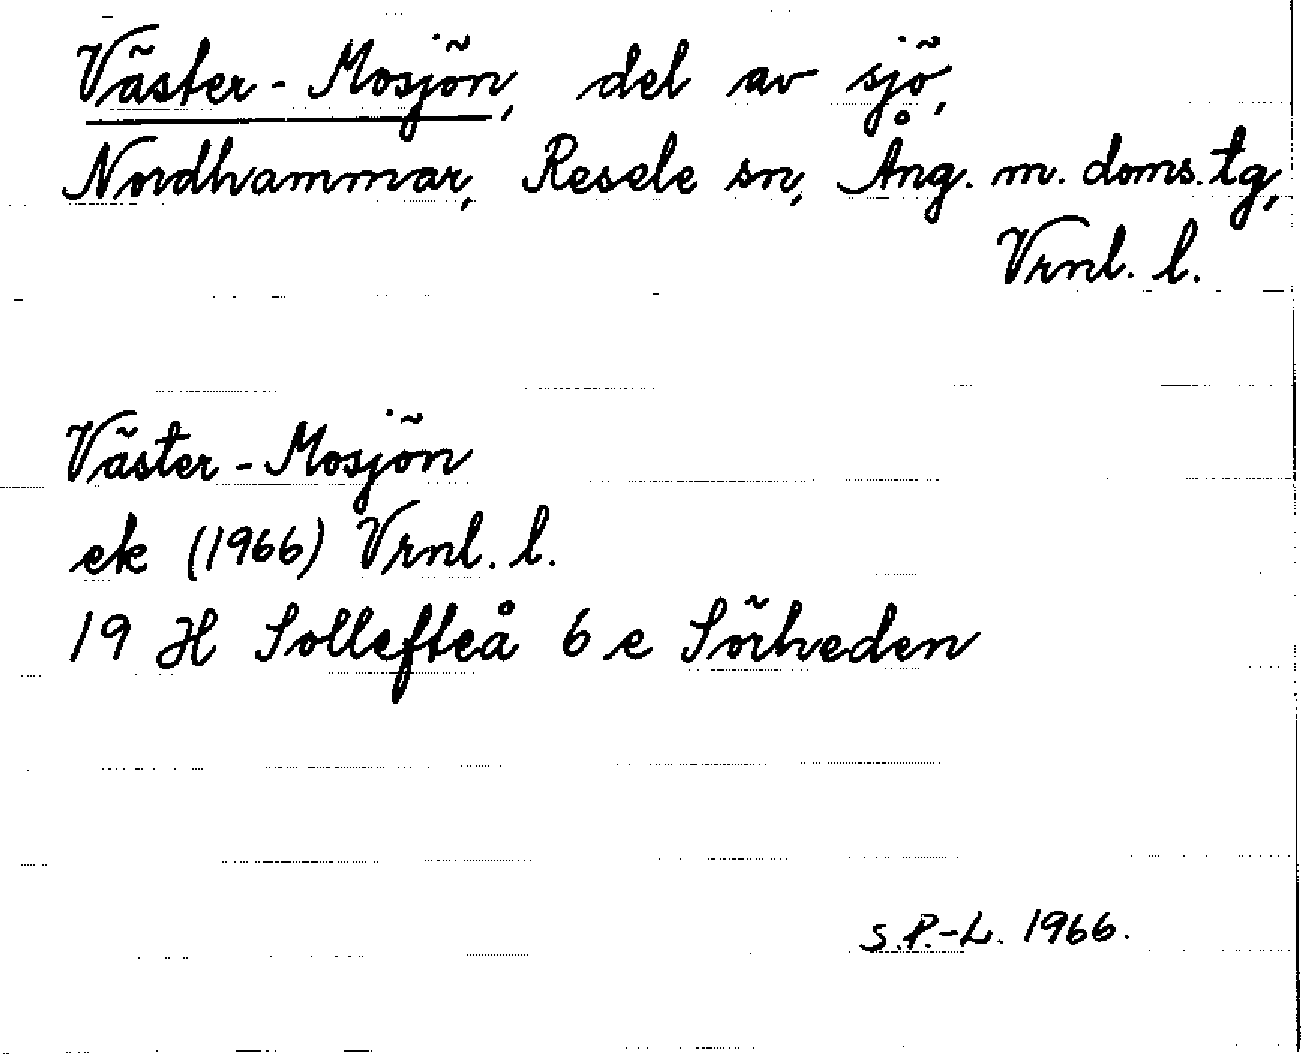 Väster-Mosjön, del av sjö,
Nordhammar, Resele sn, Ång. m. doms. tg,
Vrnl. l.
Väster-Mosjön
ek (1966) Vrnl. l.
19 H Sollefteå 6 e Sörheden
S.P.-L. 1966.